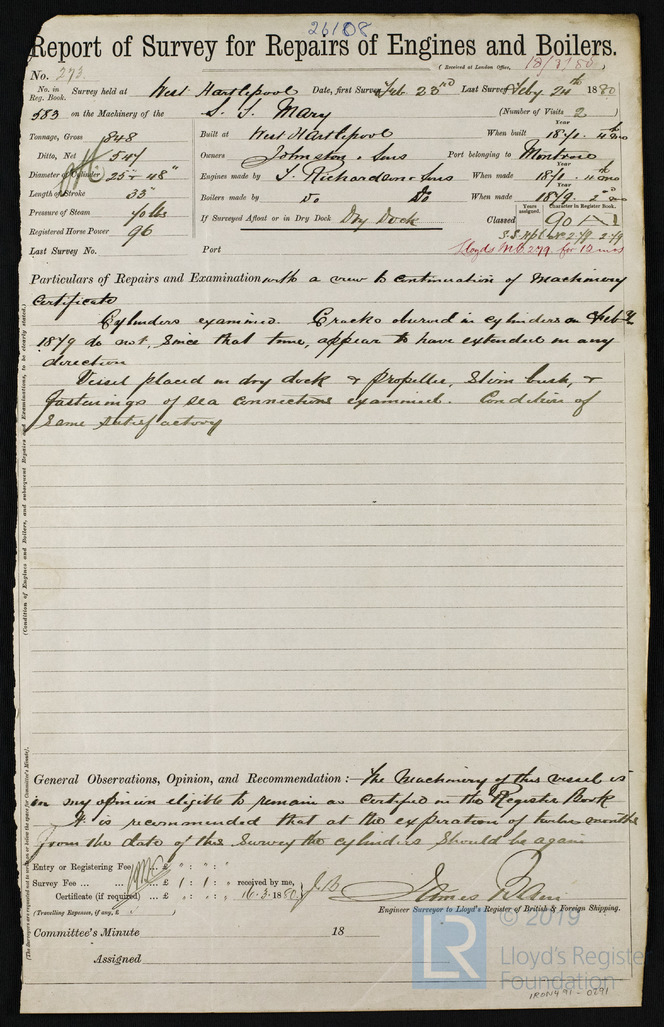 26108
Report of Survey for Repairs of Engines and Boilers.
(Received at London Office, 18/3/80)
No. 273
No. in Reg. Book. Survey held at West Hartlepool Date, first Survey Feb. 23rd Last Survey Feby 24th 1880
583 on the Machinery of the S. S. Mary (Number of Visits 2)
Tonnage, Gross 848
Ditto, Net 547
Diameter of Cylinder 25" & 48"
Length of Stroke 33"
Pressure of Steam 70 lbs
Registered Horse Power 96
Last Survey No. Port
Built at West Hartlepool When built Year 1871. 11th mo
Owners Johnston & Sons Port belonging to Montrose
Engines made by T. Richardson & Sons When made Year 1871. 11th mo
Boilers made by Do Do When made Year 1879. 2nd mo
If Surveyed Afloat or in Dry Dock Dry Dock
Years assigned. Character in Register Book.
Classed 90 A1
S.S. Hpl. No 2.79. 2.79
Lloyds M.C. 2.79 for 12 mos
Particulars of Repairs and Examination with a view to continuation of Machinery
Certificate
Cylinders examined. Cracks observed in cylinders on Feby
1879 do not, since that time, appear to have extended in any
direction
Vessel placed in dry dock & propeller, Stern bush, &
fastenings of sea connections examined. Condition of
same satisfactory
(Condition of Engines and Boilers, and subsequent Repairs and Examinations, to be clearly stated.)
General Observations, Opinion, and Recommendation:— The Machinery of this vessel is
in my opinion eligible to remain as certified in the Register Book
It is recommended that at the expiration of twelve months
from the date of this Survey the cylinders should be again
Entry or Registering Fee £ " : " : "
Survey Fee ... ... £ 1 : 1 : " received by me,
Certificate (if required) .. £ " : " : " 16.3.1880 J.B.
(Travelling Expenses, if any, £ )
James Blair
Engineer Surveyor to Lloyd's Register of British & Foreign Shipping.
Committee's Minute 18
Assigned
(The Surveyors are requested not to write on or below the space for Committee's Minute).
© 2019
LR
Lloyd's Register
Foundation
IRON491-0291